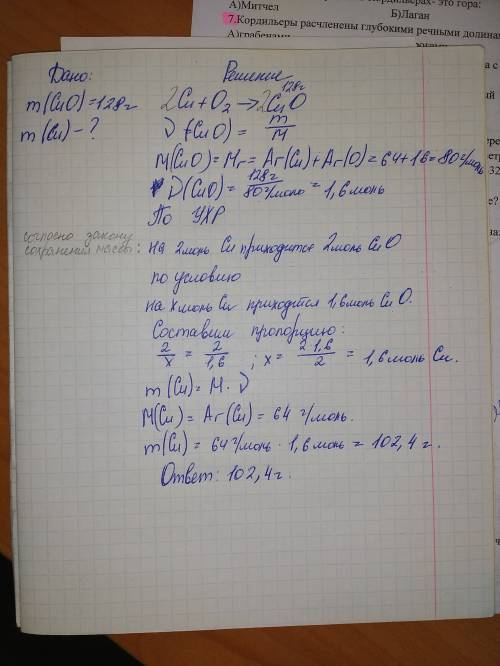 А)Митчел
Б)Лаган
7.Кордильеры расчленены глубокими речными долина
Дано:
Решение
m(CuO)=128г
m(Cu)-?
128г
2Cu+O₂→2CuO
ν(CuO)=m/M
M(CuO)=Mr=Ar(Cu)+Ar(O)=64+16=80г/моль
ν(CuO)=128г/80г/моль=1,6моль
По УХР
согласно закону
сохранения массы:
на 2моль Cu приходится 2моль CuO
по условию
на x моль Cu приходится 1,6моль CuO.
Составим пропорцию:
2/x=2/1,6; x=2·1,6/2=1,6моль Cu.
m(Cu)=M·ν
M(Cu)=Ar(Cu)=64г/моль.
m(Cu)=64г/моль·1,6моль=102,4г.
Ответ: 102,4г.